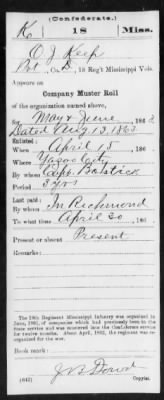 (Confederate.)
K 18 Miss.
O J Keep
Pvt, Co. D, 18 Reg't Mississippi Vols.
Appears on
Company Muster Roll
of the organization named above,
for May & June 186
Dated Aug 13, 186
Enlisted:
When April 15, 186
Where Yazoo City
By whom Capt Bostick
Period 3 yrs
Last paid:
By whom In Richmond
To what time April 30, 186
Present or absent Present
Remarks:
The 18th Regiment Mississippi Infantry was organized in
June, 1861, of companies which had previously been in the
State service and was mustered into the Confederate service
for twelve months. About April, 1862, the regiment was re-
organized for the war.
Book mark:
(642) Copyist.